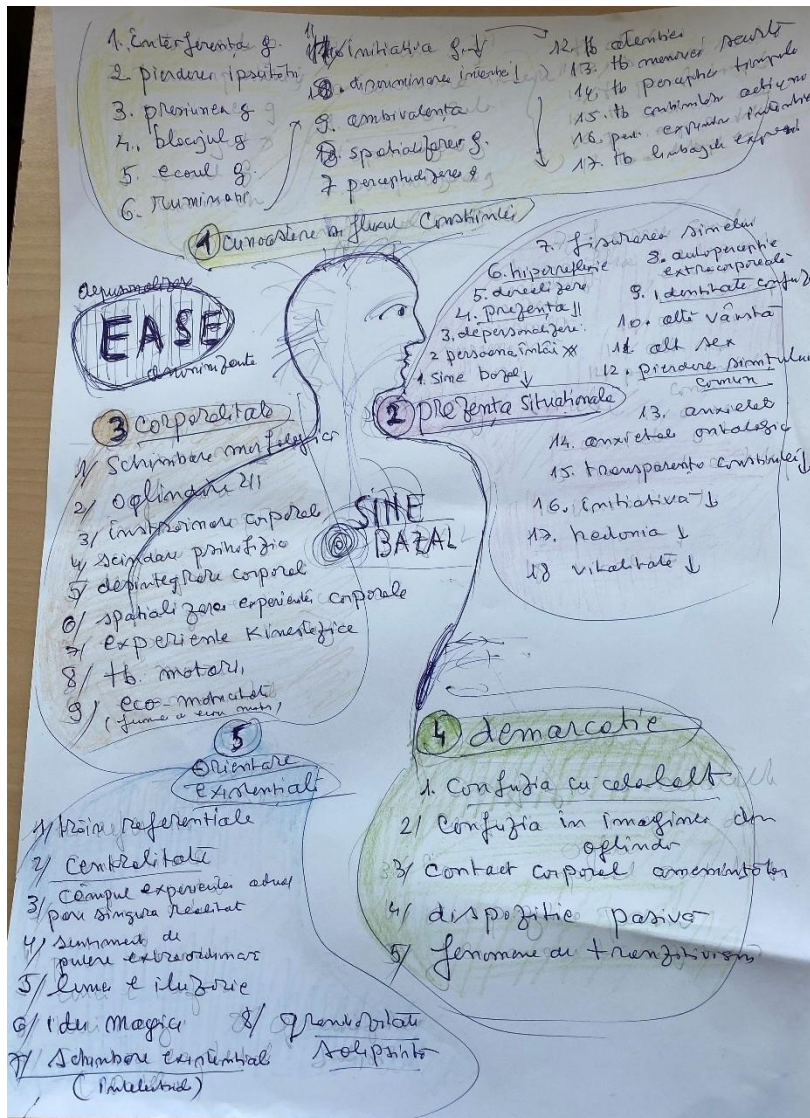 1. Interferența g.
2. pierderea ipseității
3. presiunea g
4. blocajul g
5. ecoul g.
6. ruminații
11 inițiativa g. ↓
10. discriminarea intenției ↓
9. ambivalența
8. spațializarea g.
7 perceptualizarea g
12. tb atenției
13. tb memoriei scurtă
14. tb percepției timpului
15. tb
16.
17. tb limbajului expresiv
1 cunoaștere și fluxul Conștiinței
depersonalizare
EASE
anonimizante
7. fisurarea sinelui
6. hiperreflexie
5. derealizare
4. prezența ↓↓
3. depersonalizare
2 persoana întâi
1. Sine bazal ↓
8. autopercepție
extracorporeală
9. identitate confuză
10. altă vârstă
11. alt sex
12. pierdere simțului
comun
13. anxietate
14. anxietate ontologică
15. transparența conștiinței ↓
16. inițiativă ↓
17. hedonia ↓
18 vitalitate ↓
2 prezența situațională
3 corporalitate
1/ Schimbare morfologică
2/ oglindire
3/ înstrăinare corporală
4/ scindare psihofizică
5/ dezintegrare corporală
6/ spațializarea experienței corporale
7/ experiențe Kinestezice
8/ tb. motorii
9/ eco-motricitate
0 SINE
BAZAL
4 demarcație
1. Confuzia cu celălalt
2/ Confuzia în imaginea din
oglindă
3/ contact corporal amenințător
4/ dispoziție pasivă
5/ fenomene de tranzitivism
5
Orientare
existențială
1/ trăiri referențiale
2/ centralitate
3/ câmpul experienței actual
pare singura realitate
4/ sentiment de
putere extraordinară
5/ lumea e iluzorie
6/ idei magice
7/ schimbare existențială
(intelectual)
8/ grandozitate
solipsistă